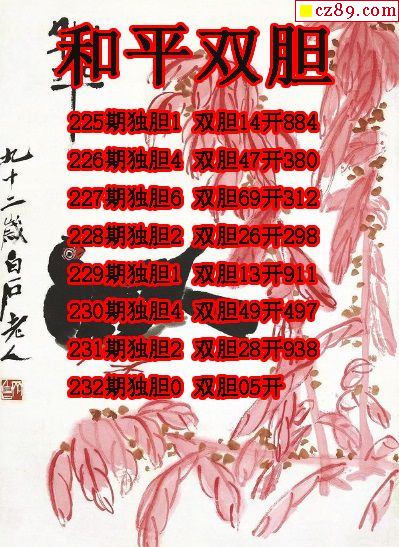 cz89.com
和平
和平双胆
225期独胆1 双胆14开884
226期独胆4 双胆47开380
227期独胆6 双胆69开312
228期独胆2 双胆26开298
229期独胆1 双胆13开911
230期独胆4 双胆49开497
231期独胆2 双胆28开938
232期独胆0 双胆05开
九十二岁白石老人